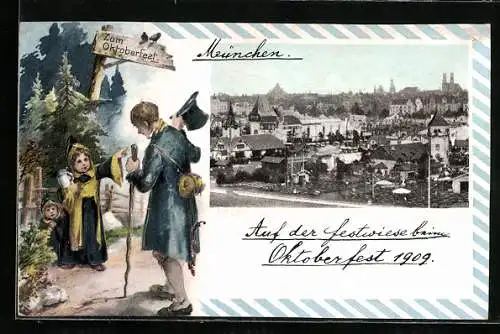 Zum
Oktoberfest
Meünchen.
Auf der festwiese beim
Oktoberfest 1909.